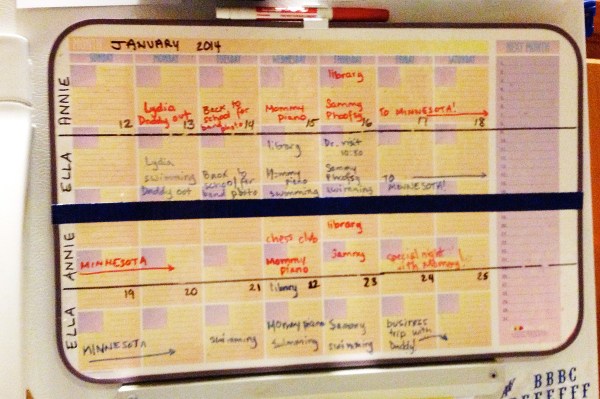 JANUARY 2014
SUNDAY MONDAY TUESDAY WEDNESDAY THURSDAY FRIDAY SATURDAY NEXT MONTH
ANNIE
library
Lydia
Daddy out
Back to
school for
band photo
Mommy
piano
Sammy
TO MINNESOTA!
12 13 14 15 16 17 18
ELLA
Lydia
swimming
Daddy out
Back to
school for
band photo
library
Mommy
piano
swimming
Dr. visit
10:50
Sammy
swimming
TO
MINNESOTA!
ANNIE
MINNESOTA
chess club
Mommy
piano
library
Sammy
special night
with Mommy!
19 20 21 22 23 24 25
ELLA
MINNESOTA
swimming
library
Mommy piano
swimming
Sammy
swimming
business
trip with
Daddy!
BBBC